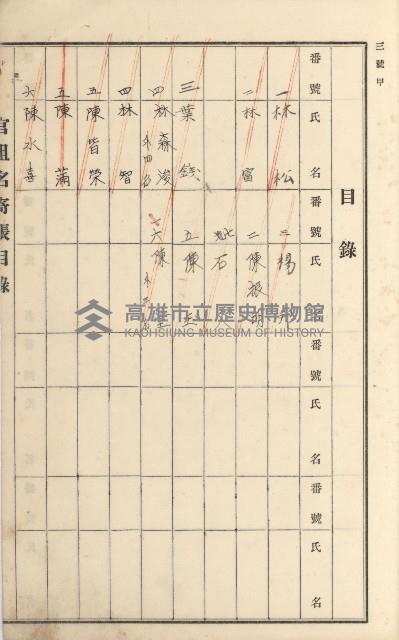 三號甲
目錄
番號 氏名 番號 氏名 番號 氏名 番號 氏名
一 林松
二 林富
三 葉錢
四 林森浚 外四名
四 林智
五 陳皆榮
五 陳蒲
六 陳水喜
二 楊
二 陳振明
七 石
五 陳
六 陳
官租名寄帳目錄
高雄市立歷史博物館
KAOHSIUNG MUSEUM OF HISTORY